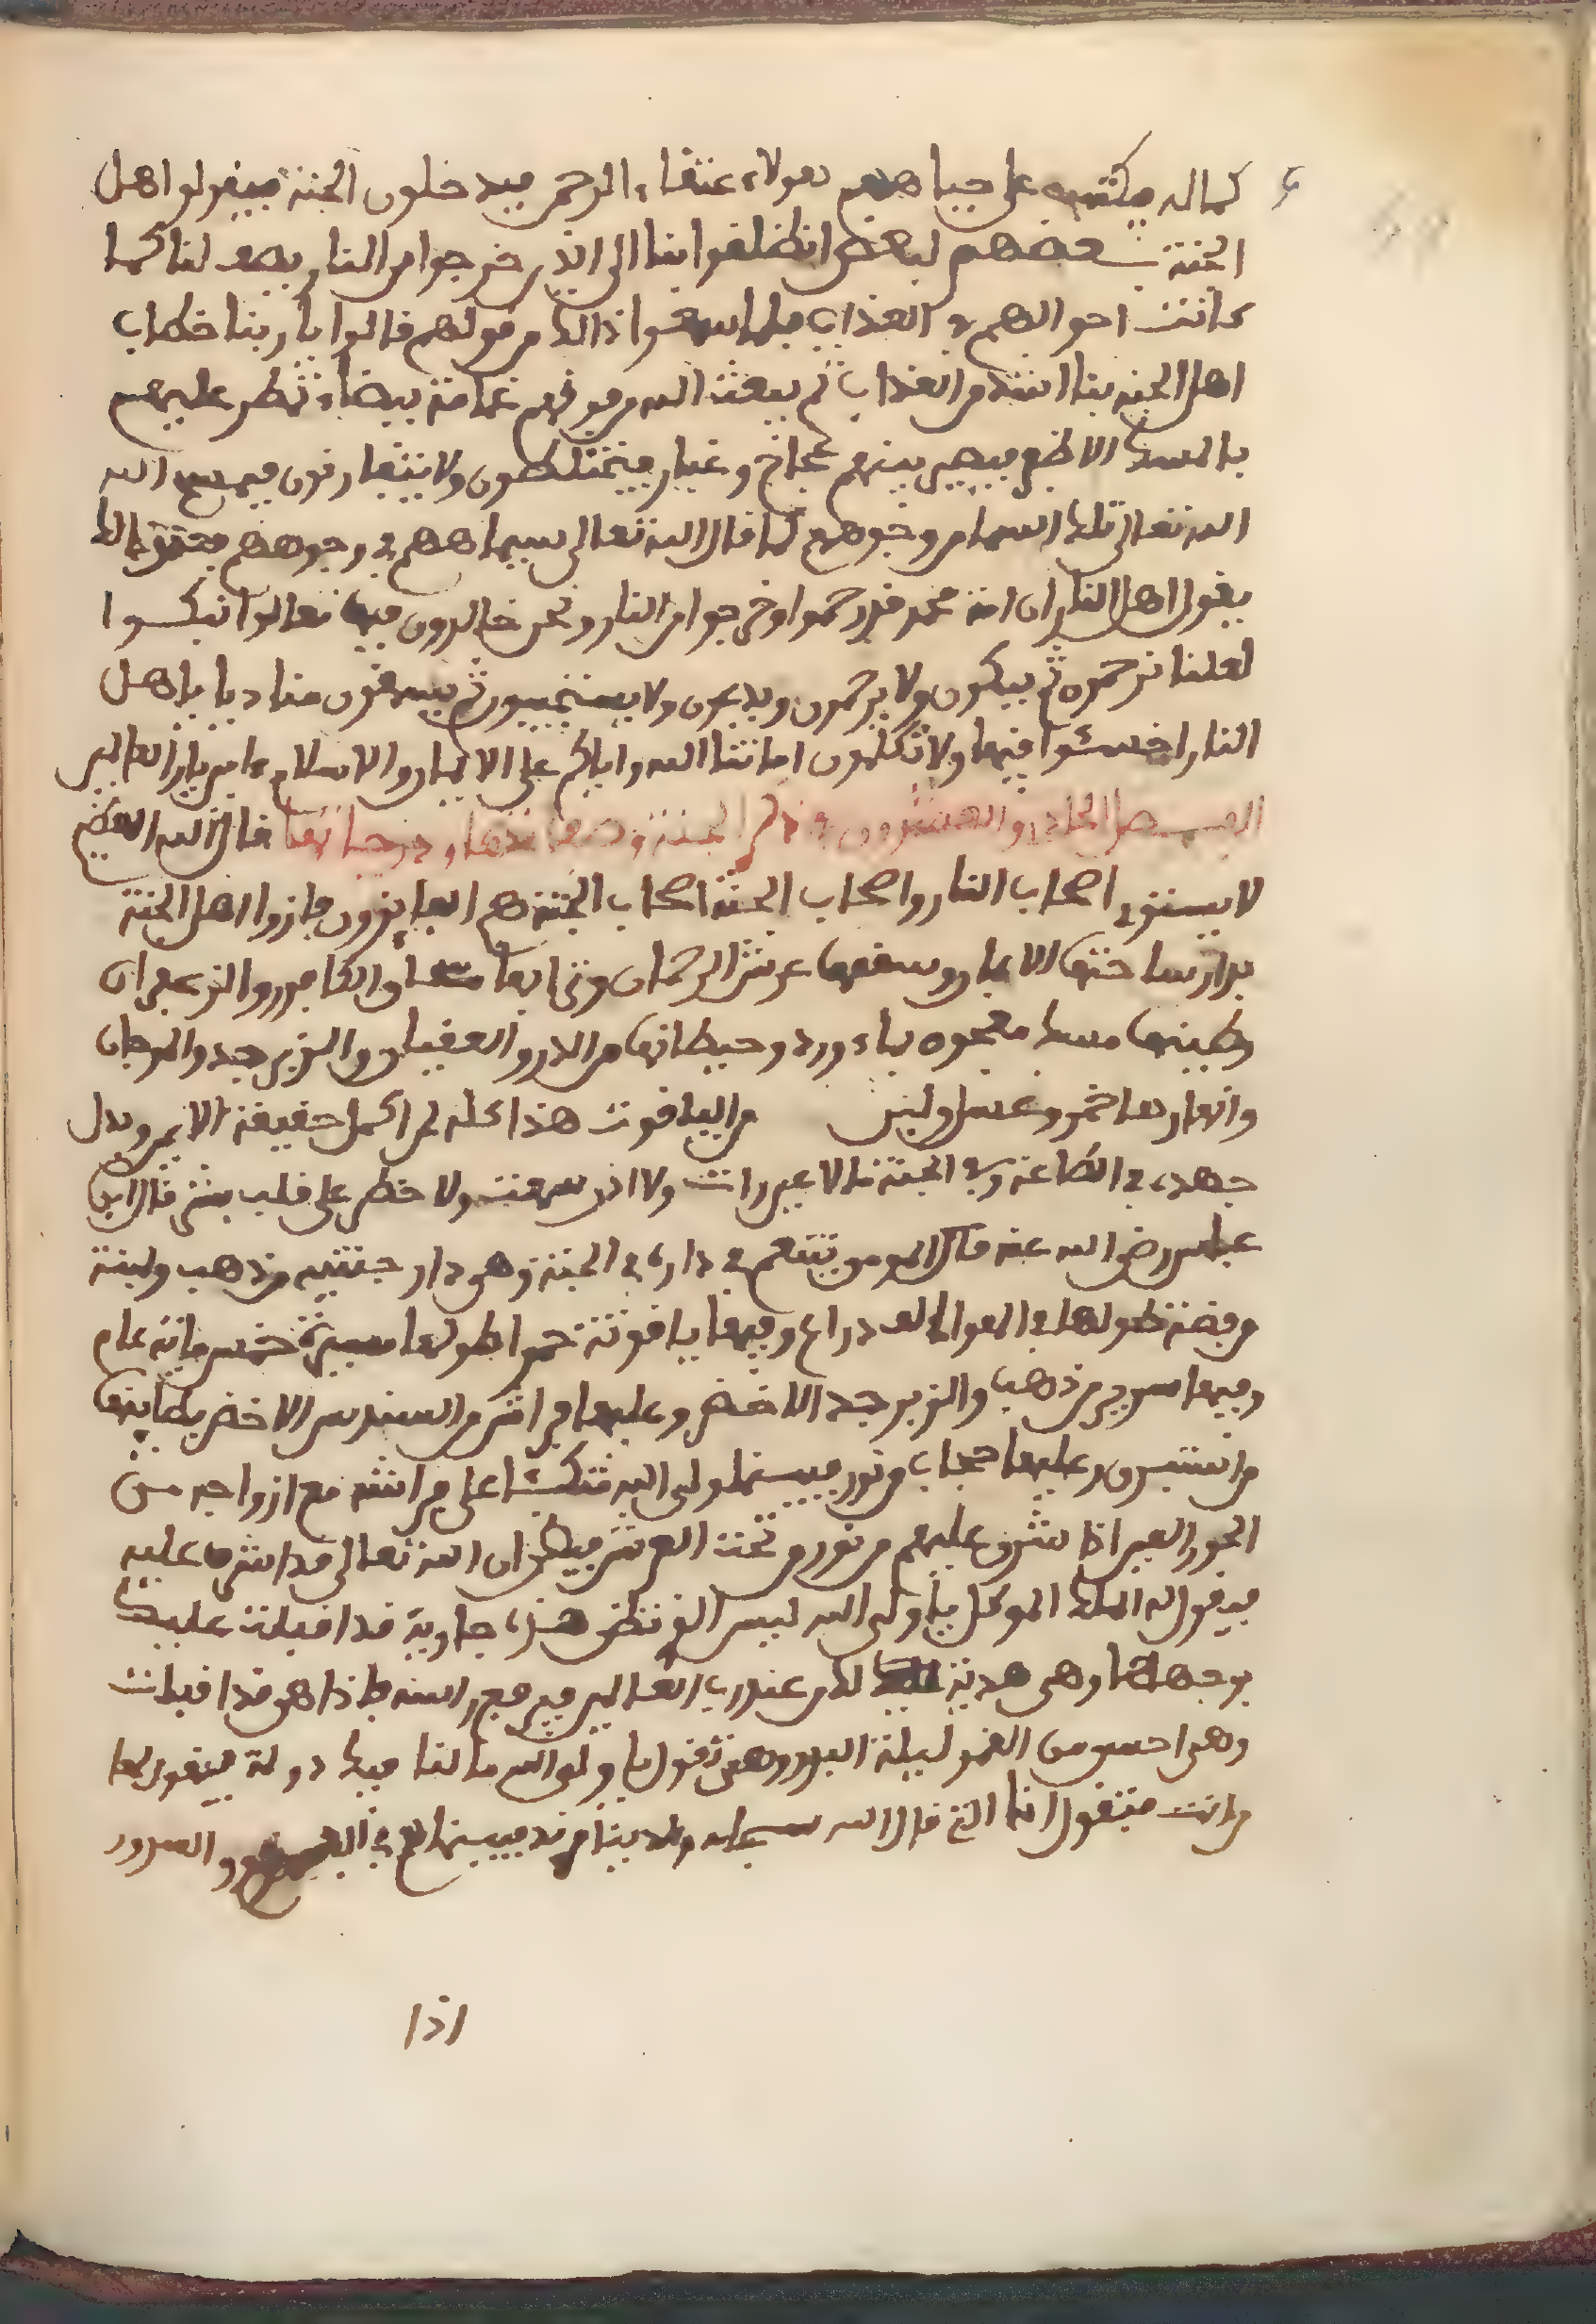 كما له مكتوب على جباههم هولاء عتقاء الرحمن فيدخلون الجنة فيقولوا اهل
الجنة بعضهم لبعض انطلقوا بنا الى الذين خرجوا من النار يصفون لنا كما
كانت احوالهم في العذاب فلما سمعوا ذالك من قولهم قالوا يا ربنا خطاب
اهل الجنة بنا اشد من العذاب ثم يبعث الله من فوقهم غمامة بيضاء تمطر عليهم
بالمسك الاظفر فيصير بينهم عجاج وغبار فيختلطون ولا يتعارفون فيمسح الله
الله تعالى تلك السما من وجوههم كما قال الله تعالى سيماهم في وجوههم فعند ذالك
يقول اهل النار ان امة محمد قد رحموا وخرجوا من النار ونحن خالدون فيها تعالوا نبكوا
لعلنا نرحموه ثم يبكون ولا يرحمون ويدعون ولا يستجيبون ثم يسمعون مناديا يا اهل
النار اخسئوا فيها ولا تكلمون اماتنا الله واياكم على الايمان والاسلام ءامين يارب العالمين
الفصل الحادي والعشرون في ذكر الجنة وصفاتها ودرجاتها قال الله العظيم
لا يستوي اصحاب النار واصحاب الجنة اصحاب الجنة هم الفايزون فازوا اهل الجنة
بدار ساحتها الايمان وسقفها عرش الرحمان وترابها مسك والكافور والزعفران
وطينها مسك معجون بماء ورد وحيطانها من الدر والعقيان والزبرجد والمرجان
وانهارها خمر وعسل ولبن من الياقوت هذا كله لمن اكمل حقيقة الايمن وبدل
جهده في الطاعة وفي الجنة ما لا عين رات ولا اذن سمعت ولا خطر على قلب بشر قال ابن
عباس رضي الله عنه قال المومن يتنعم في داره في الجنة وهي دار جنتين من ذهب ولبنة
من فضة طولها في الهوا الف دراع وفيها ياقوتة حمرا طولها مسيرة خمس ماية عام
وفيها سرير من ذهب والزبرجد الاخضر وعليها فراش من السندس الاخضر بطاينها
من استبرق وعليها حجاب من نور فبينما ولي الله متكئا على فراشه مع ازواجه من
الحور العين اذا شرق عليهم من نور من تحت العرش فيظن ان الله تعالى قد اشرف عليه
فيقول له الملك الموكل يا ولي الله ليس الذي تنظر هذه جارية قد اقبلت عليك
بوجهها وهي هدية لك من عند رب العالمين فيرفع راسه فاذا هي قد اقبلت
وهي احسن من القمر ليلة البدر وهي تقول يا ولي الله ما لنا فيك دولة فيقول لها
من انت فتقول انا التي قال الله سبحانه ولدينا مزيد فبينما هم في الفرح والسرور
اذا